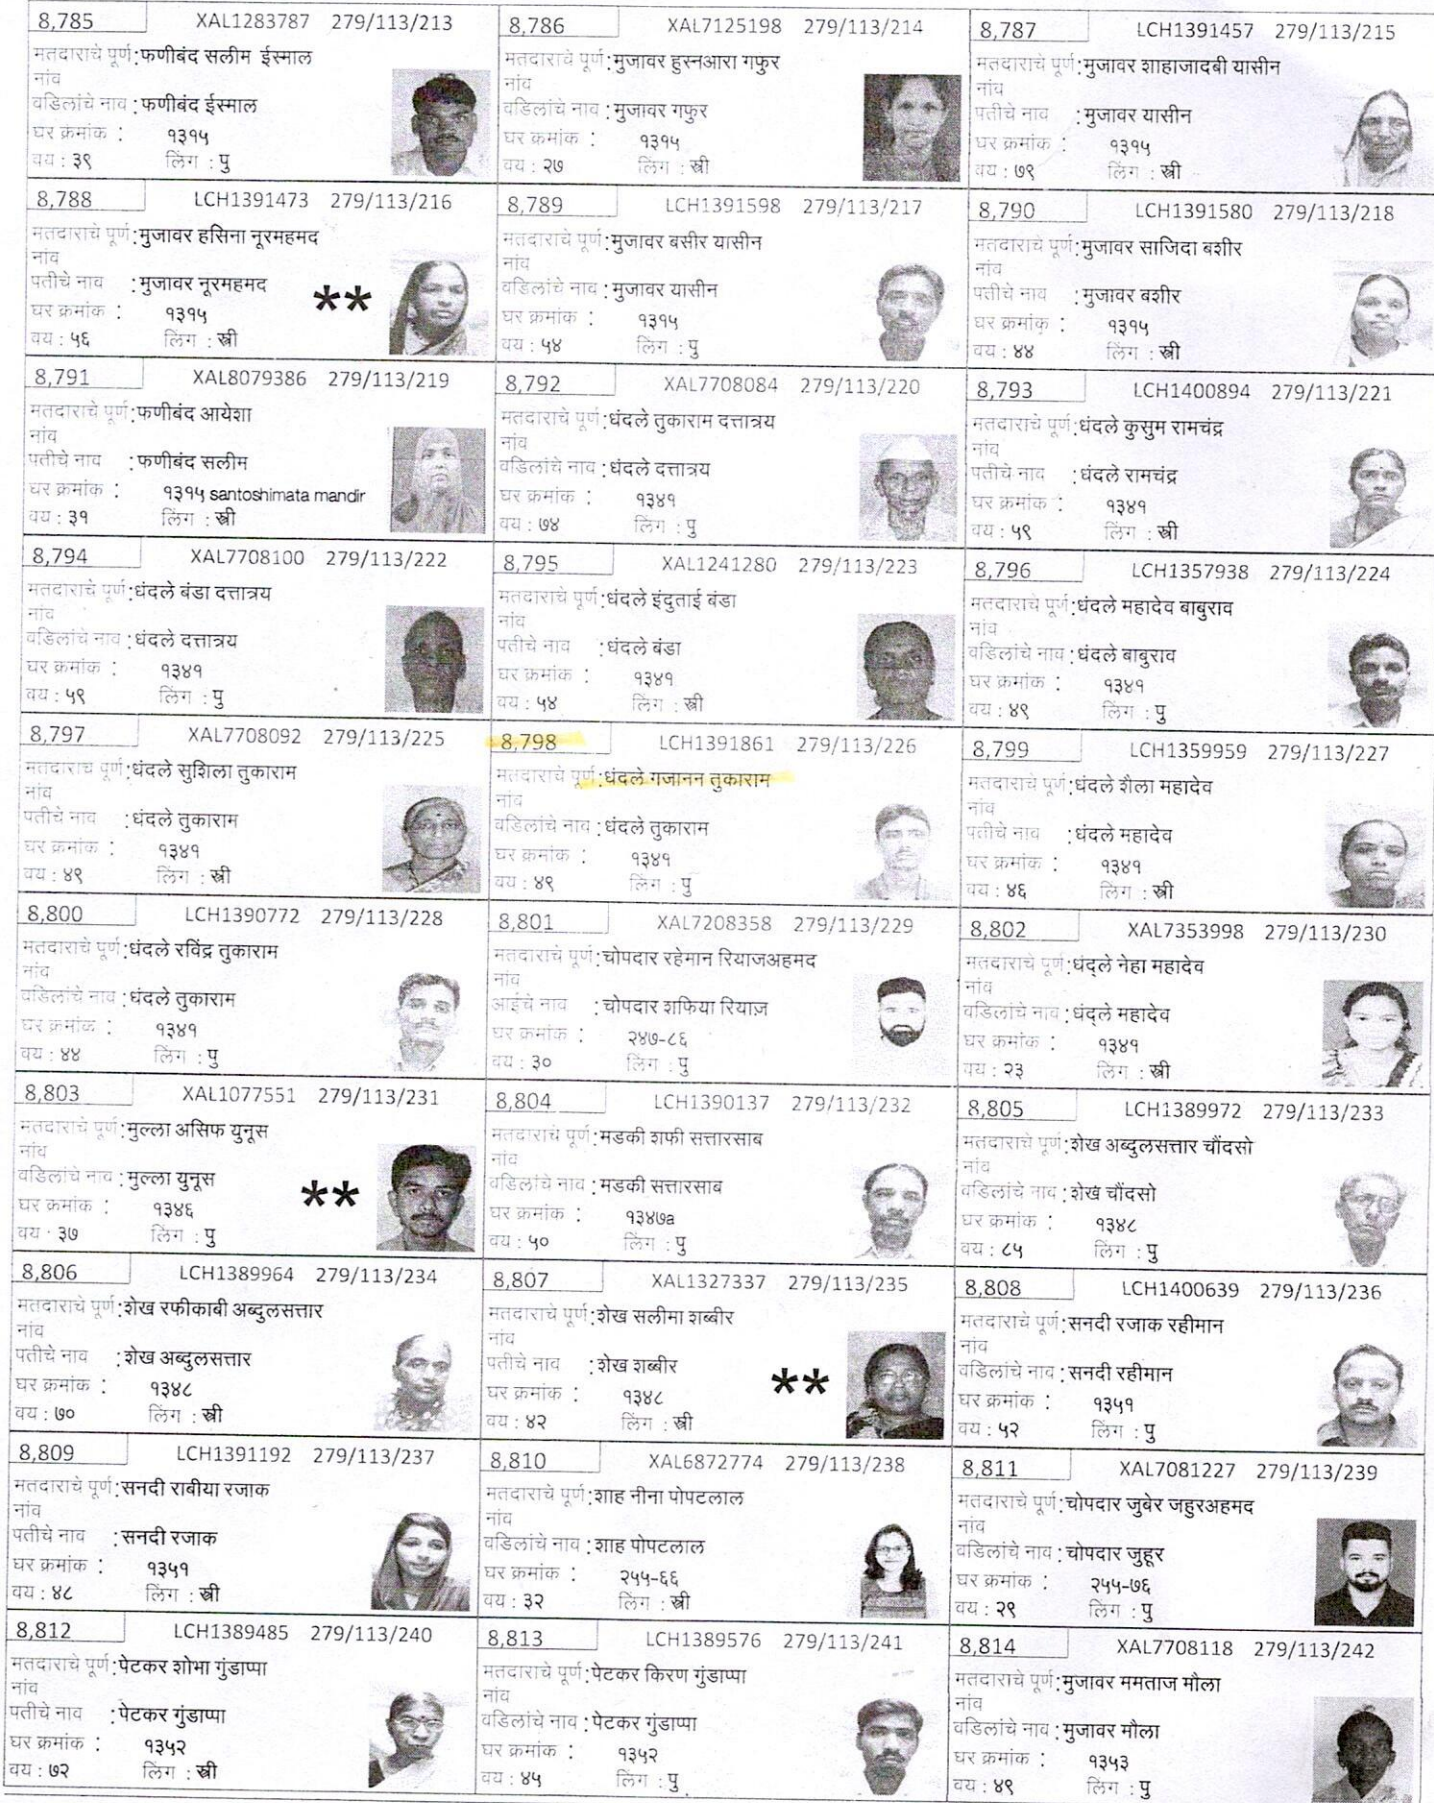 8,785 XAL1283787 279/113/213
मतदाराचे पूर्ण : फणीबंद सलीम ईस्माल
नांव
वडिलांचे नाव : फणीबंद ईस्माल
घर क्रमांक : १३१५
वय : ३९ लिंग : पु
8,786 XAL7125198 279/113/214
मतदाराचे पूर्ण : मुजावर हुस्नआरा गफुर
नांव
वडिलांचे नाव : मुजावर गफुर
घर क्रमांक : १३१५
वय : २७ लिंग : स्त्री
8,787 LCH1391457 279/113/215
मतदाराचे पूर्ण : मुजावर शाहाजादबी यासीन
नांव
पतीचे नाव : मुजावर यासीन
घर क्रमांक : १३१५
वय : ७९ लिंग : स्त्री
8,788 LCH1391473 279/113/216
मतदाराचे पूर्ण : मुजावर हसिना नूरमहमद
नांव
पतीचे नाव : मुजावर नूरमहमद **
घर क्रमांक : १३१५
वय : ५६ लिंग : स्त्री
8,789 LCH1391598 279/113/217
मतदाराचे पूर्ण : मुजावर बसीर यासीन
नांव
वडिलांचे नाव : मुजावर यासीन
घर क्रमांक : १३१५
वय : ५४ लिंग : पु
8,790 LCH1391580 279/113/218
मतदाराचे पूर्ण : मुजावर साजिदा बशीर
नांव
पतीचे नाव : मुजावर बशीर
घर क्रमांक : १३१५
वय : ४४ लिंग : स्त्री
8,791 XAL8079386 279/113/219
मतदाराचे पूर्ण : फणीबंद आयेशा
नांव
पतीचे नाव : फणीबंद सलीम
घर क्रमांक : १३१५ santoshimata mandir
वय : ३१ लिंग : स्त्री
8,792 XAL7708084 279/113/220
मतदाराचे पूर्ण : धंदले तुकाराम दत्तात्रय
नांव
वडिलांचे नाव : धंदले दत्तात्रय
घर क्रमांक : १३४१
वय : ७४ लिंग : पु
8,793 LCH1400894 279/113/221
मतदाराचे पूर्ण : धंदले कुसुम रामचंद्र
नांव
पतीचे नाव : धंदले रामचंद्र
घर क्रमांक : १३४१
वय : ५९ लिंग : स्त्री
8,794 XAL7708100 279/113/222
मतदाराचे पूर्ण : धंदले बंडा दत्तात्रय
नांव
वडिलांचे नाव : धंदले दत्तात्रय
घर क्रमांक : १३४१
वय : ५९ लिंग : पु
8,795 XAL1241280 279/113/223
मतदाराचे पूर्ण : धंदले इंदुताई बंडा
नांव
पतीचे नाव : धंदले बंडा
घर क्रमांक : १३४१
वय : ५४ लिंग : स्त्री
8,796 LCH1357938 279/113/224
मतदाराचे पूर्ण : धंदले महादेव बाबुराव
नांव
वडिलांचे नाव : धंदले बाबुराव
घर क्रमांक : १३४१
वय : ४९ लिंग : पु
8,797 XAL7708092 279/113/225
मतदाराचे पूर्ण : धंदले सुशिला तुकाराम
नांव
पतीचे नाव : धंदले तुकाराम
घर क्रमांक : १३४१
वय : ४९ लिंग : स्त्री
8,798 LCH1391861 279/113/226
मतदाराचे पूर्ण : धंदले गजानन तुकाराम
नांव
वडिलांचे नाव : धंदले तुकाराम
घर क्रमांक : १३४१
वय : ४९ लिंग : पु
8,799 LCH1359959 279/113/227
मतदाराचे पूर्ण : धंदले शैला महादेव
नांव
पतीचे नाव : धंदले महादेव
घर क्रमांक : १३४१
वय : ४६ लिंग : स्त्री
8,800 LCH1390772 279/113/228
मतदाराचे पूर्ण : धंदले रविंद्र तुकाराम
नांव
वडिलांचे नाव : धंदले तुकाराम
घर क्रमांक : १३४१
वय : ४४ लिंग : पु
8,801 XAL7208358 279/113/229
मतदाराचे पूर्ण : चोपदार रहेमान रियाजअहमद
नांव
आईचे नाव : चोपदार शफिया रियाज़
घर क्रमांक : २४७-८६
वय : ३० लिंग : पु
8,802 XAL7353998 279/113/230
मतदाराचे पूर्ण : धंद्ले नेहा महादेव
नांव
वडिलांचे नाव : धंद्ले महादेव
घर क्रमांक : १३४१
वय : २३ लिंग : स्त्री
8,803 XAL1077551 279/113/231
मतदाराचे पूर्ण : मुल्ला असिफ युनूस
नांव
वडिलांचे नाव : मुल्ला युनूस **
घर क्रमांक : १३४६
वय : ३७ लिंग : पु
8,804 LCH1390137 279/113/232
मतदाराचे पूर्ण : मडकी शफी सत्तारसाब
नांव
वडिलांचे नाव : मडकी सत्तारसाब
घर क्रमांक : १३४७a
वय : ५० लिंग : पु
8,805 LCH1389972 279/113/233
मतदाराचे पूर्ण : शेख अब्दुलसत्तार चौंदसो
नांव
वडिलांचे नाव : शेख चौंदसो
घर क्रमांक : १३४८
वय : ८५ लिंग : पु
8,806 LCH1389964 279/113/234
मतदाराचे पूर्ण : शेख रफीकाबी अब्दुलसत्तार
नांव
पतीचे नाव : शेख अब्दुलसत्तार
घर क्रमांक : १३४८
वय : ७० लिंग : स्त्री
8,807 XAL1327337 279/113/235
मतदाराचे पूर्ण : शेख सलीमा शब्बीर
नांव
पतीचे नाव : शेख शब्बीर **
घर क्रमांक : १३४८
वय : ४२ लिंग : स्त्री
8,808 LCH1400639 279/113/236
मतदाराचे पूर्ण : सनदी रजाक रहीमान
नांव
वडिलांचे नाव : सनदी रहीमान
घर क्रमांक : १३५१
वय : ५२ लिंग : पु
8,809 LCH1391192 279/113/237
मतदाराचे पूर्ण : सनदी राबीया रजाक
नांव
पतीचे नाव : सनदी रजाक
घर क्रमांक : १३५१
वय : ४८ लिंग : स्त्री
8,810 XAL6872774 279/113/238
मतदाराचे पूर्ण : शाह नीना पोपटलाल
नांव
वडिलांचे नाव : शाह पोपटलाल
घर क्रमांक : २५५-६६
वय : ३२ लिंग : स्त्री
8,811 XAL7081227 279/113/239
मतदाराचे पूर्ण : चोपदार जुबेर जहुरअहमद
नांव
वडिलांचे नाव : चोपदार जुहूर
घर क्रमांक : २५५-७६
वय : २९ लिंग : पु
8,812 LCH1389485 279/113/240
मतदाराचे पूर्ण : पेटकर शोभा गुंडाप्पा
नांव
पतीचे नाव : पेटकर गुंडाप्पा
घर क्रमांक : १३५२
वय : ७२ लिंग : स्त्री
8,813 LCH1389576 279/113/241
मतदाराचे पूर्ण : पेटकर किरण गुंडाप्पा
नांव
वडिलांचे नाव : पेटकर गुंडाप्पा
घर क्रमांक : १३५२
वय : ४५ लिंग : पु
8,814 XAL7708118 279/113/242
मतदाराचे पूर्ण : मुजावर ममताज मौला
नांव
वडिलांचे नाव : मुजावर मौला
घर क्रमांक : १३५३
वय : ४९ लिंग : पु